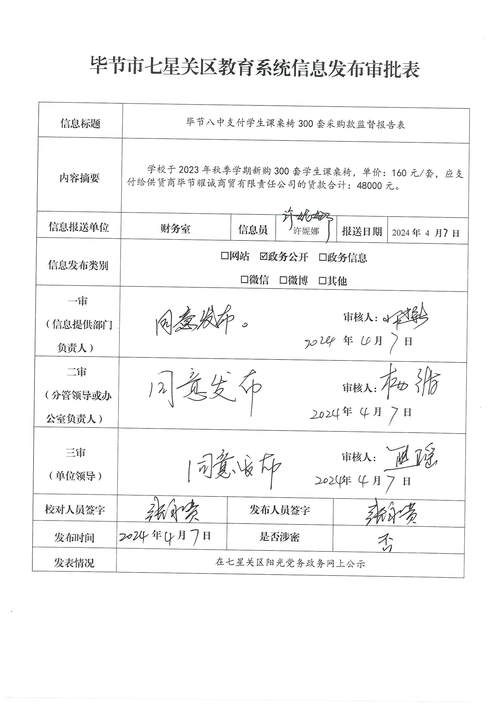 毕节市七星关区教育系统信息发布审批表
信息标题 毕节八中支付学生课桌椅300套采购款监督报告表
内容摘要 学校于2023年秋季学期新购300套学生课桌椅,单价:160元/套,应支
付给供货商毕节骝诚商贸有限责任公司的货款合计:48000元。
许妮娜
信息报送单位 财务室 信息员 许妮娜 报送日期 2024年4月7日
信息发布类别 □网站 ☑政务公开 □政务信息
□微信 □微博 □其他
一审
(信息提供部门
负责人)
同意发布。 审核人:
2024年4月7日
二审
(分管领导或办
公室负责人)
同意发布 审核人:
2024年4月7日
三审
(单位领导)
同意发布 审核人:
2024年4月7日
校对人员签字 张永贵 发布人员签字 张永贵
发布时间 2024年4月7日 是否涉密 否
发表情况 在七星关区阳光党务政务网上公示